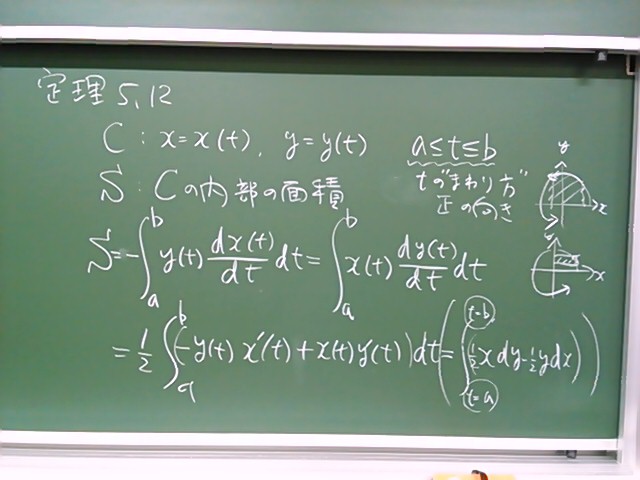 定理 5.12
C : x = x(t), y = y(t) a ≤ t ≤ b
S : Cの内部の面積 tの"まわり方"
正の向き
S = -∫_a^b y(t) dx(t)/dt dt = ∫_a^b x(t) dy(t)/dt dt
= 1/2 ∫_a^b (-y(t) x'(t) + x(t) y'(t)) dt (= ∫_{t=a}^{t=b} (1/2 x dy - 1/2 y dx))
y
x
x